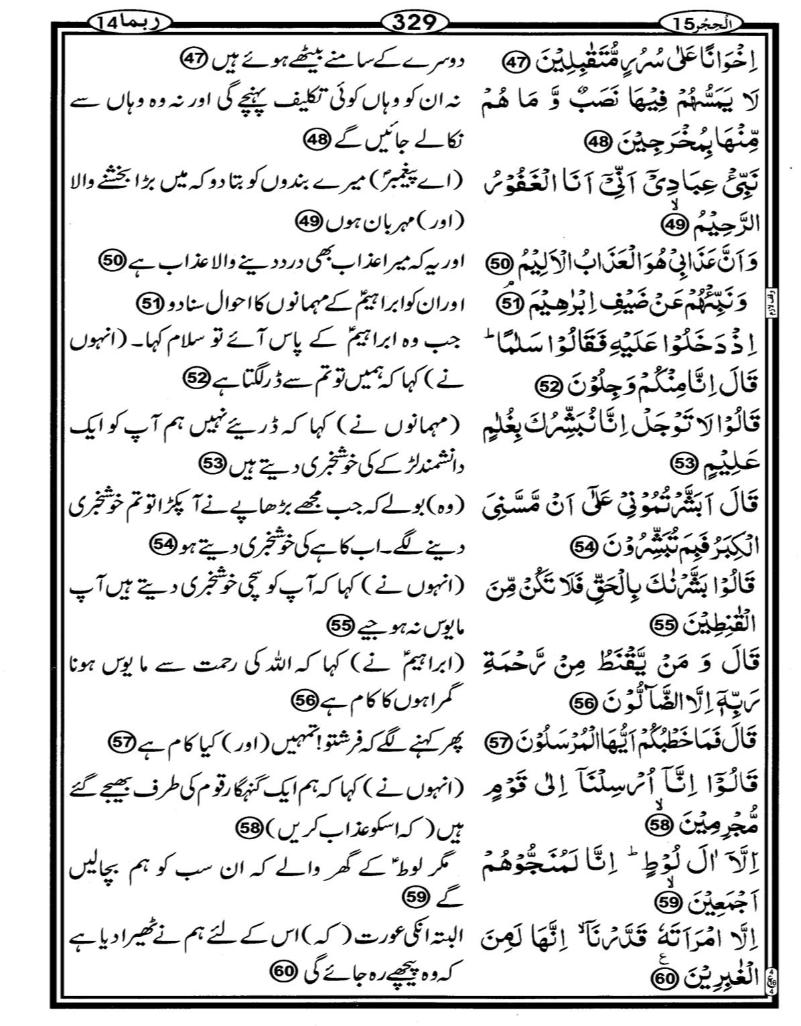 الْحِجْر 15
329
رُبَمَا 14
اِخْوَانًا عَلٰى سُرُرٍ مُّتَقٰبِلِيْنَ 47
دوسرے کے سامنے بیٹھے ہوئے ہیں 47
لَا يَمَسُّهُمْ فِيْهَا نَصَبٌ وَّ مَا هُمْ
مِّنْهَا بِمُخْرَجِيْنَ 48
نہ ان کو وہاں کوئی تکلیف پہنچے گی اور نہ وہ وہاں سے
نکالے جائیں گے 48
نَبِّئْ عِبَادِيْٓ اَنِّيْٓ اَنَا الْغَفُوْرُ
الرَّحِيْمُ ۙ 49
(اے پیغمبرؐ) میرے بندوں کو بتا دو کہ میں بڑا بخشنے والا
(اور) مہربان ہوں 49
وَ اَنَّ عَذَابِيْ هُوَ الْعَذَابُ الْاَلِيْمُ 50
اور یہ کہ میرا عذاب بھی درد دینے والا عذاب ہے 50
وَ نَبِّئْهُمْ عَنْ ضَيْفِ اِبْرٰهِيْمَ ۘ 51
وقف لازم
اور ان کو ابراہیمؑ کے مہمانوں کا احوال سنا دو 51
اِذْ دَخَلُوْا عَلَيْهِ فَقَالُوْا سَلٰمًا ؕ
قَالَ اِنَّا مِنْكُمْ وَجِلُوْنَ 52
جب وہ ابراہیمؑ کے پاس آئے تو سلام کہا۔ (انہوں
نے) کہا کہ ہمیں تو تم سے ڈر لگتا ہے 52
قَالُوْا لَا تَوْجَلْ اِنَّا نُبَشِّرُكَ بِغُلٰمٍ
عَلِيْمٍ 53
(مہمانوں نے) کہا کہ ڈریئے نہیں ہم آپ کو ایک
دانشمند لڑکے کی خوشخبری دیتے ہیں 53
قَالَ اَبَشَّرْتُمُوْنِيْ عَلٰٓى اَنْ مَّسَّنِيَ
الْكِبَرُ فَبِمَ تُبَشِّرُوْنَ 54
(وہ) بولے کہ جب مجھے بڑھاپے نے آ پکڑا تو تم خوشخبری
دینے لگے۔ اب کاہے کی خوشخبری دیتے ہو 54
قَالُوْا بَشَّرْنٰكَ بِالْحَقِّ فَلَا تَكُنْ مِّنَ
الْقٰنِطِيْنَ 55
(انہوں نے) کہا کہ آپ کو سچی خوشخبری دیتے ہیں آپ
مایوس نہ ہو جیے 55
قَالَ وَ مَنْ يَّقْنَطُ مِنْ رَّحْمَةِ
رَبِّهٖٓ اِلَّا الضَّآلُّوْنَ 56
(ابراہیمؑ نے) کہا کہ اللہ کی رحمت سے مایوس ہونا
گمراہوں کا کام ہے 56
قَالَ فَمَا خَطْبُكُمْ اَيُّهَا الْمُرْسَلُوْنَ 57
پھر کہنے لگے کہ فرشتو! تمہیں (اور) کیا کام ہے 57
قَالُوْٓا اِنَّآ اُرْسِلْنَآ اِلٰى قَوْمٍ
مُّجْرِمِيْنَ ۙ 58
(انہوں نے) کہا کہ ہم ایک گنہگار قوم کی طرف بھیجے گئے
ہیں (کہ اسکو عذاب کریں) 58
اِلَّآ اٰلَ لُوْطٍ ؕ اِنَّا لَمُنَجُّوْهُمْ
اَجْمَعِيْنَ ۙ 59
مگر لوطؑ کے گھر والے کہ ان سب کو ہم بچا لیں
گے 59
اِلَّا امْرَاَتَهٗ قَدَّرْنَآ ۙ اِنَّهَا لَمِنَ
الْغٰبِرِيْنَ ؏ 60
البتہ انکی عورت (کہ) اس کے لئے ہم نے ٹھیرا دیا ہے
کہ وہ پیچھے رہ جائے گی 60